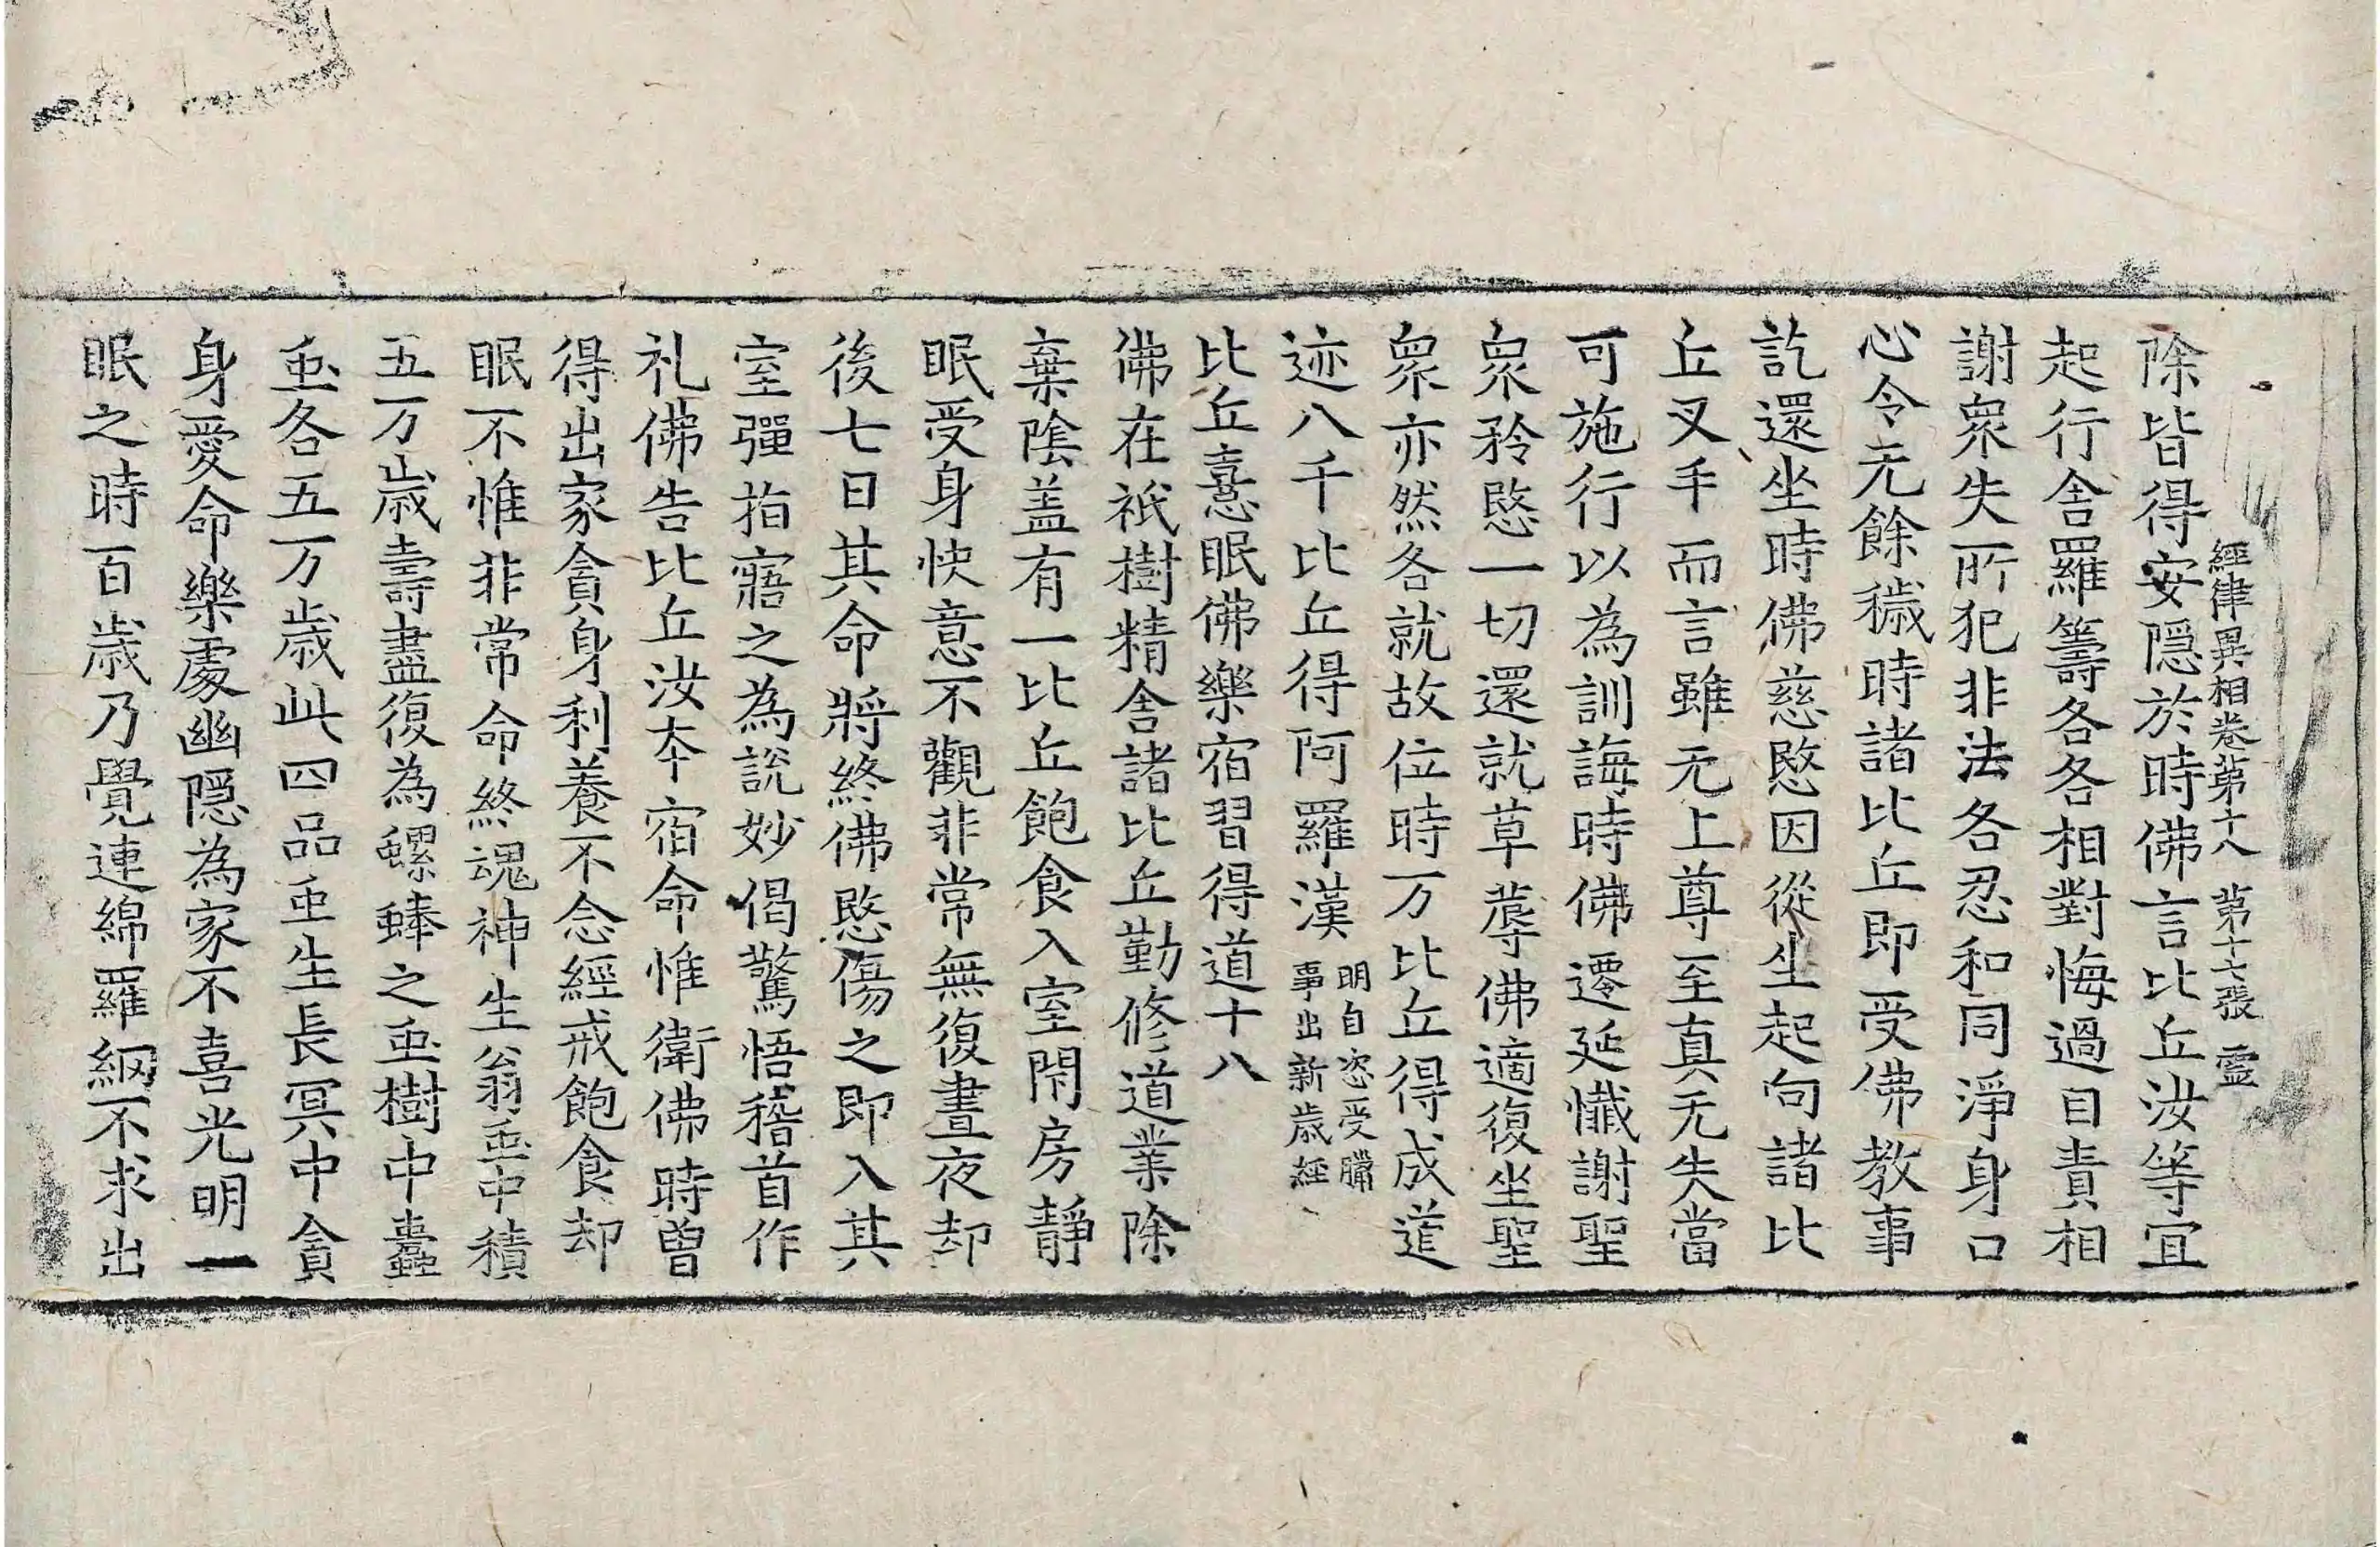 經律異相卷第十八　第十七張　靈
除皆得安隱於時佛言比丘汝等宜
起行舍羅籌各各相對悔過自責相
謝衆失所犯非法各忍和同淨身口
心令无餘穢時諸比丘即受佛教事
訖還坐時佛慈愍因從坐起向諸比
丘叉手而言雖无上尊至真无失當
可施行以為訓誨時佛遷延懺謝聖
衆矜愍一切還就草蓐佛適復坐聖
衆亦然各就故位時万比丘得成道
迹八千比丘得阿羅漢明自恣受臈事出新歲經
比丘憙眠佛樂宿習得道十八
佛在祇樹精舍諸比丘勤修道業除
棄陰盖有一比丘飽食入室閇房靜
眠受身快意不觀非常無復晝夜却
後七日其命將終佛愍傷之即入其
室彈指寤之為說妙偈驚悟稽首作
礼佛告比丘汝本宿命惟衛佛時曾
得出家貪身利養不念經戒飽食却
眠不惟非常命終魂神生蓊䖝中積
五万歲壽盡復為螺蜯之䖝樹中蠹
䖝各五万歲此四品䖝生長冥中貪
身愛命樂處幽隱為家不喜光明一
眠之時百歲乃覺連綿羅網不求出